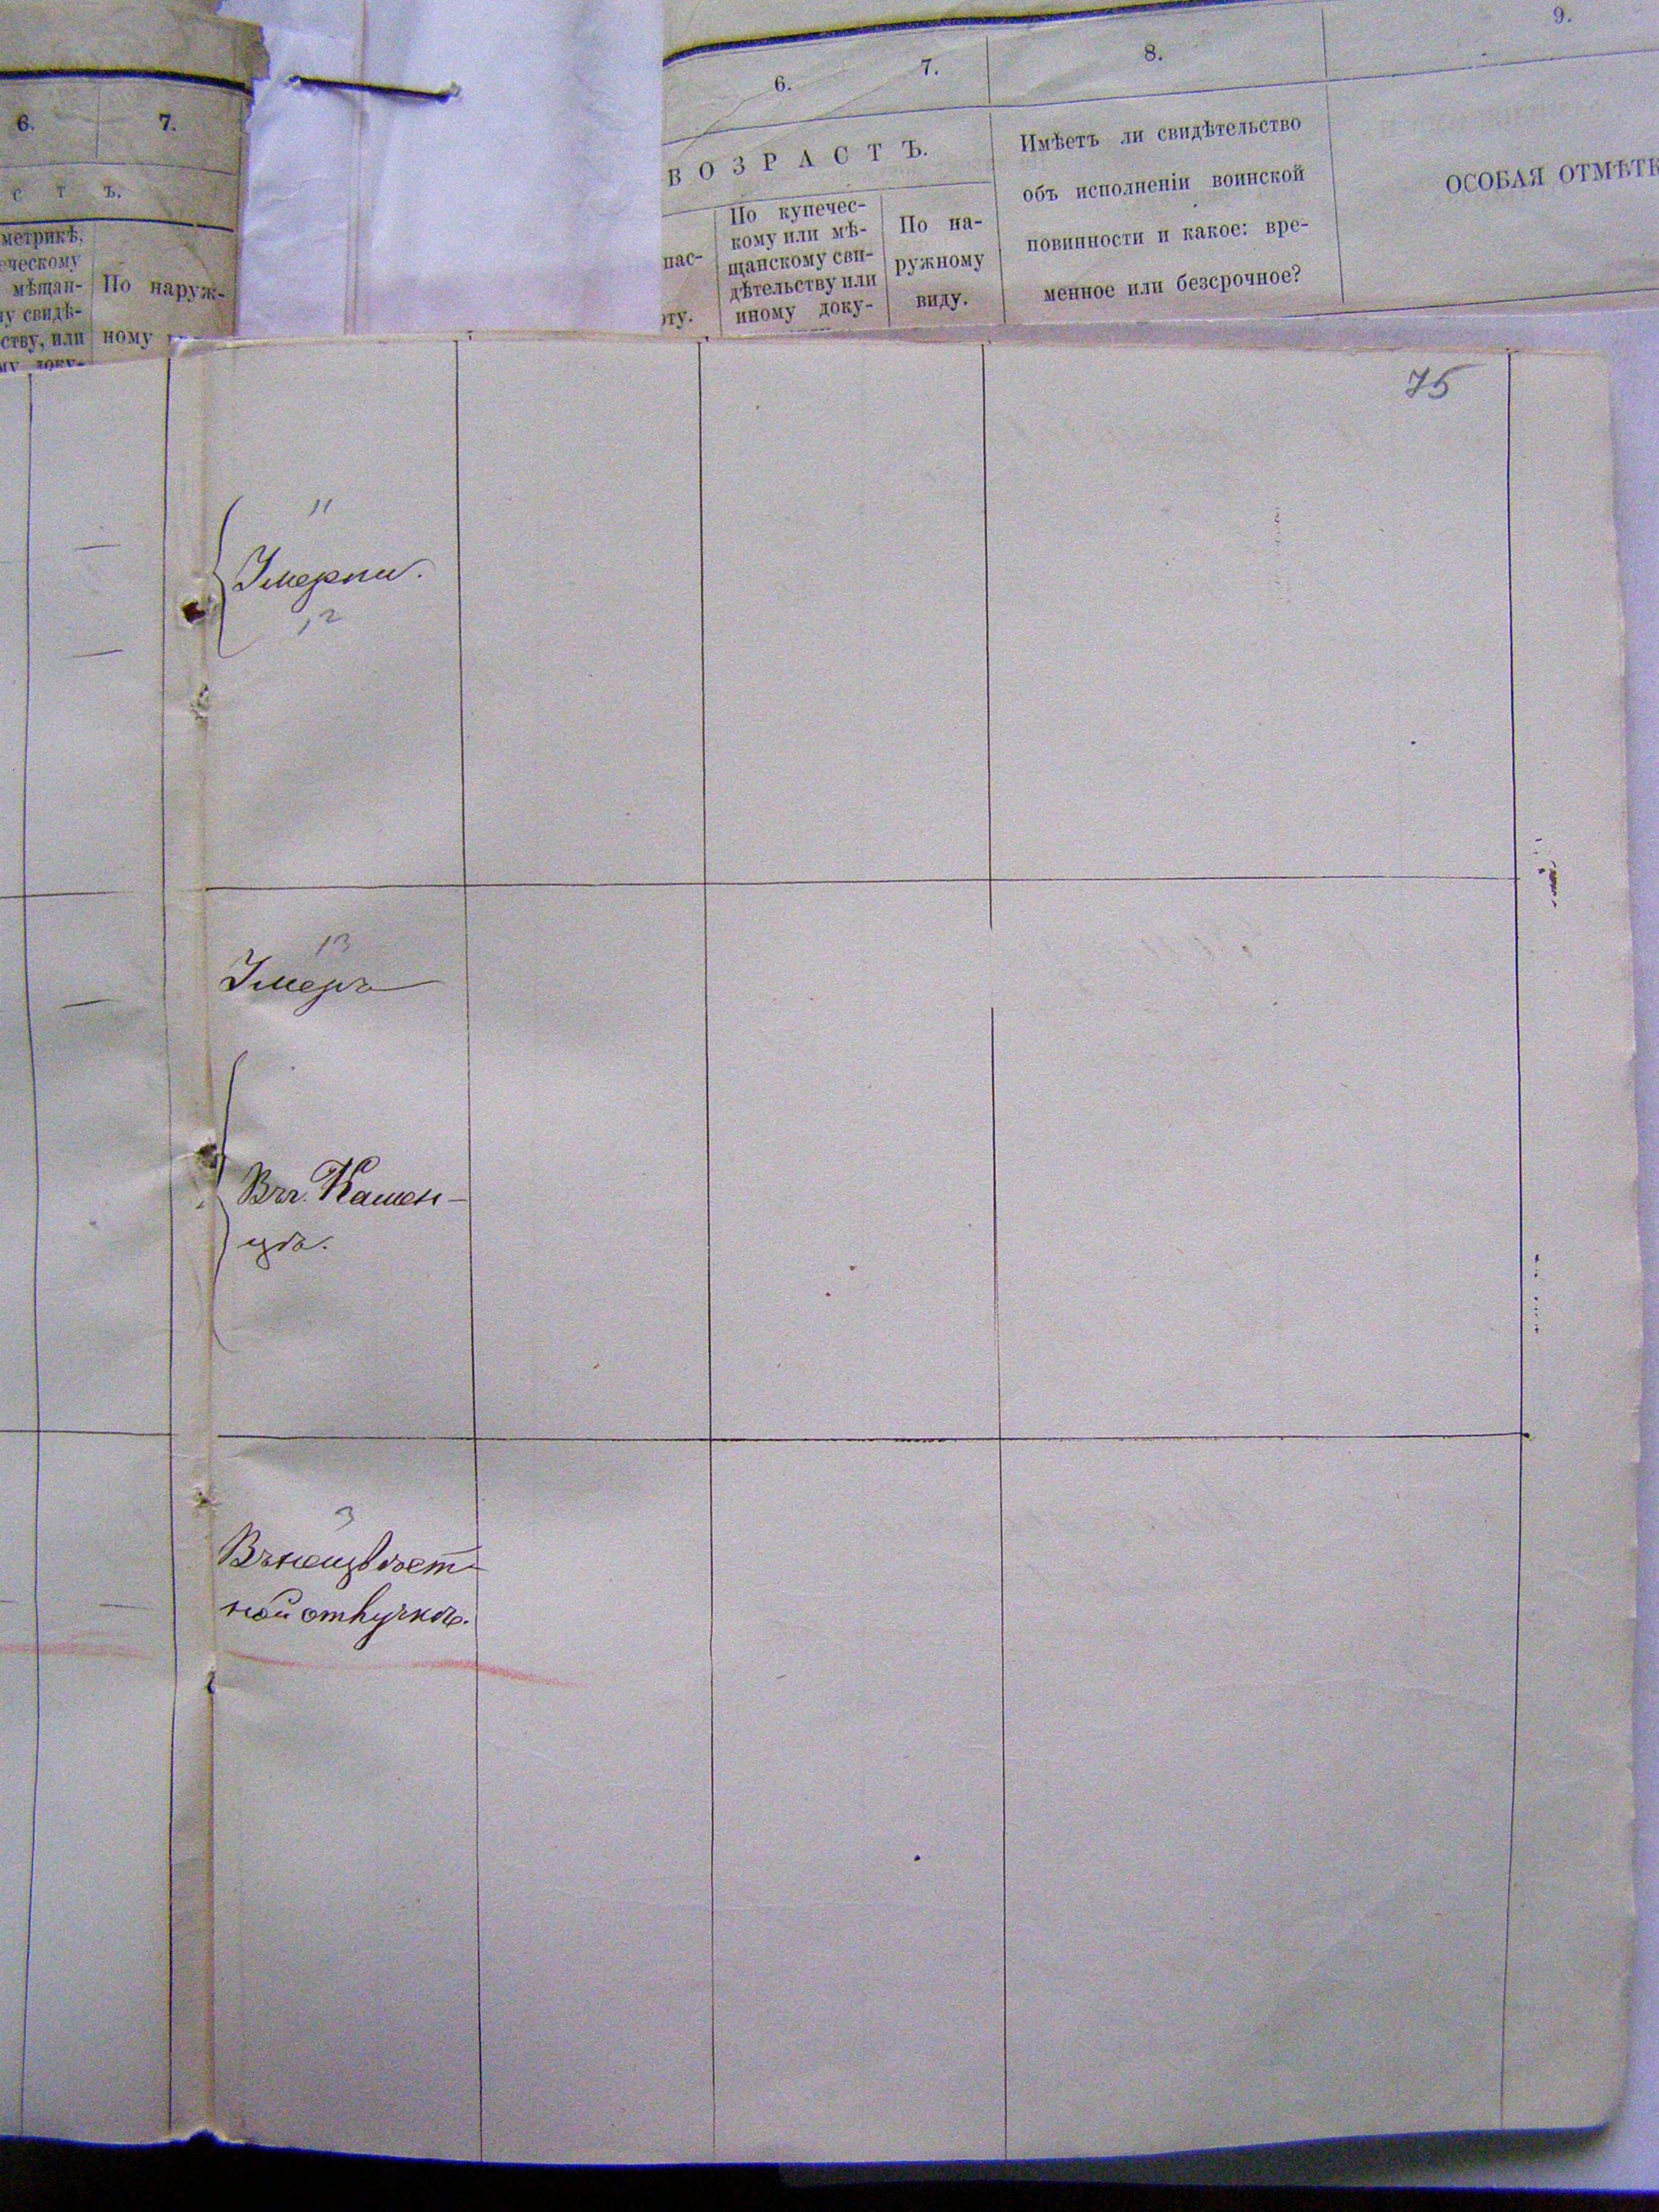 6. 7.
с т ъ.
метрикѣ,
еческому
мѣщан-
у свидѣ-
ству, или
му доку-
По наруж-
ному
6. 7. 8. 9.
ВОЗРАСТЪ.
пас-
рту.
По купечес-
кому или мѣ-
щанскому сви-
дѣтельству или
иному доку-
По на-
ружному
виду.
Имѣетъ ли свидѣтельство
объ исполненіи воинской
повинности и какое: вре-
менное или безсрочное?
ОСОБАЯ ОТМѢТК
75
11
Умерли.
12
13
Умеръ
Въ г. Камен-
цѣ.
3
Въ неизвѣст-
ной отлучкѣ.